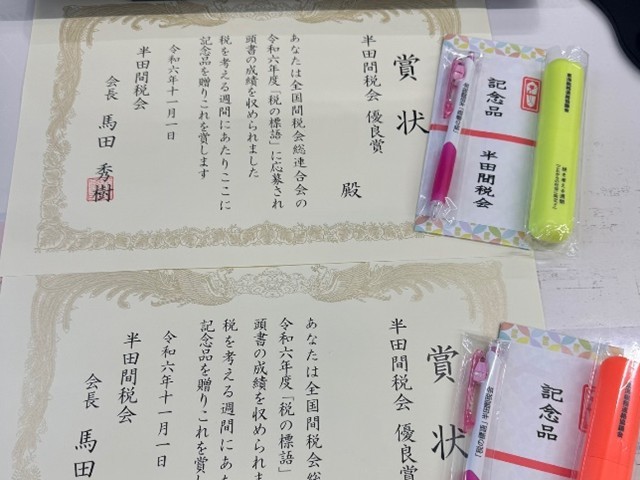 賞状
半田間税会 優良賞
殿
あなたは全国間税会総連合会の
令和六年度「税の標語」に応募され
頭書の成績を収められました
税を考える週間にあたりここに
記念品を贈りこれを賞します
令和六年十一月一日
半田間税会
会長 馬田 秀樹
記念品
半田間税会
賞状
半田間税会 優良賞
あなたは全国間税会総
令和六年度「税の標語」
頭書の成績を収められま
税を考える週間にあた
記念品を贈りこれを賞し
令和六年十一月一日
半田間税会
会長 馬田
記念品